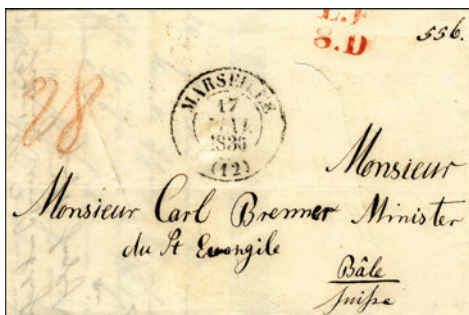 8.D
556.
28
MARSEILLE
17
1836
(12)
Monsieur
Monsieur Carl Brenner Minister
du St Evangile
Bâle
Suisse